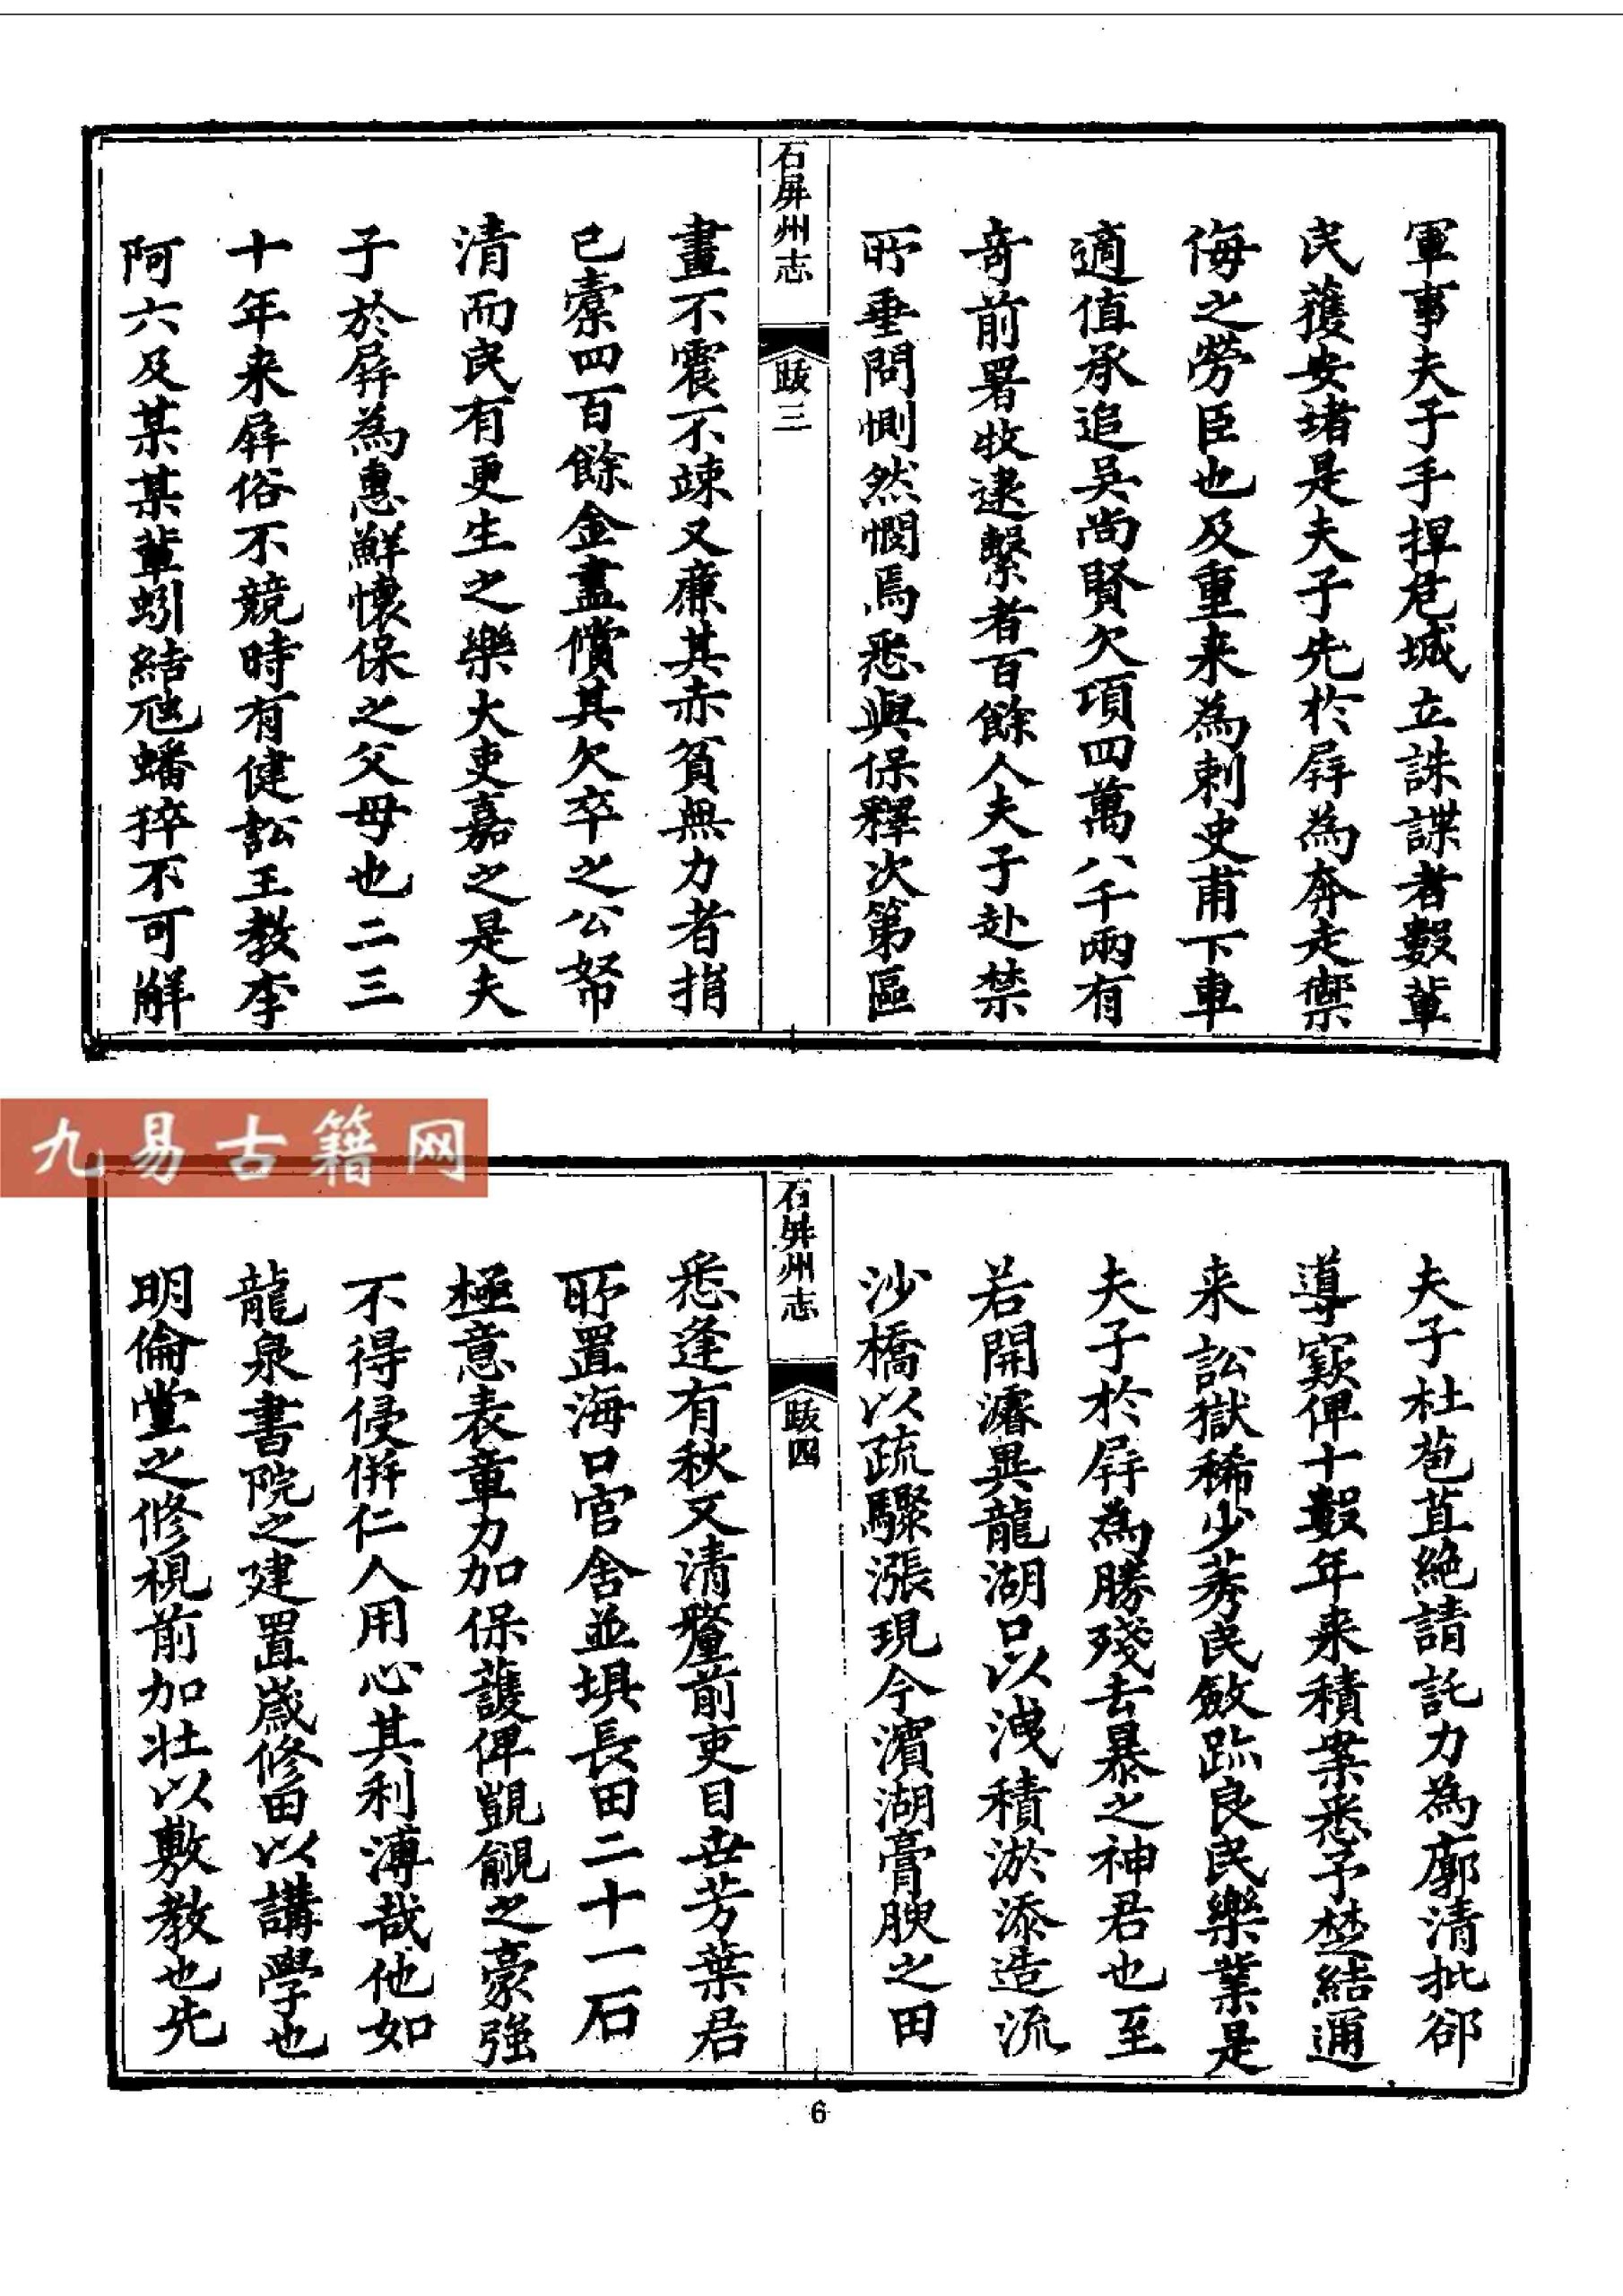 軍事夫子手捍危城立誅諜者數輩
民獲安堵是夫子先於屛為奔走禦
侮之勞臣也及重来為刺史甫下車
適值承追吳尚賢欠項四萬八千兩有
奇前署牧逮繫者百餘人夫子赴禁
所垂問惻然憫焉悉與保釋次第區
石屏州志
跋三
畫不震不竦又廉其赤貧無力者捐
已橐四百餘金盡償其欠卒之公帑
清而民有更生之樂大吏嘉之是夫
子於屛為惠鮮懷保之父母也二三
十年来屛俗不競時有健訟王教李
阿六及某某輩蚓結虺蟠猝不可解
九易古籍网
夫子杜苞苴絕請託力為廓清批郤
導窾俾十數年来積案悉予埜結邇
来訟獄稀少莠民斂跡良民樂業是
夫子於屛為勝殘去暴之神君也至
若開濬異龍湖口以洩積淤添造流
沙橋以疏驟漲現今濱湖膏腴之田
石屏州志
跋四
悉逢有秋又清釐前吏目世芳葉君
所置海口官舍並埧長田二十一石
極意表章力加保護俾覬覦之豪強
不得侵併仁人用心其利溥哉他如
龍泉書院之建置歲修田以講學也
明倫堂之修視前加壯以敷教也先
6